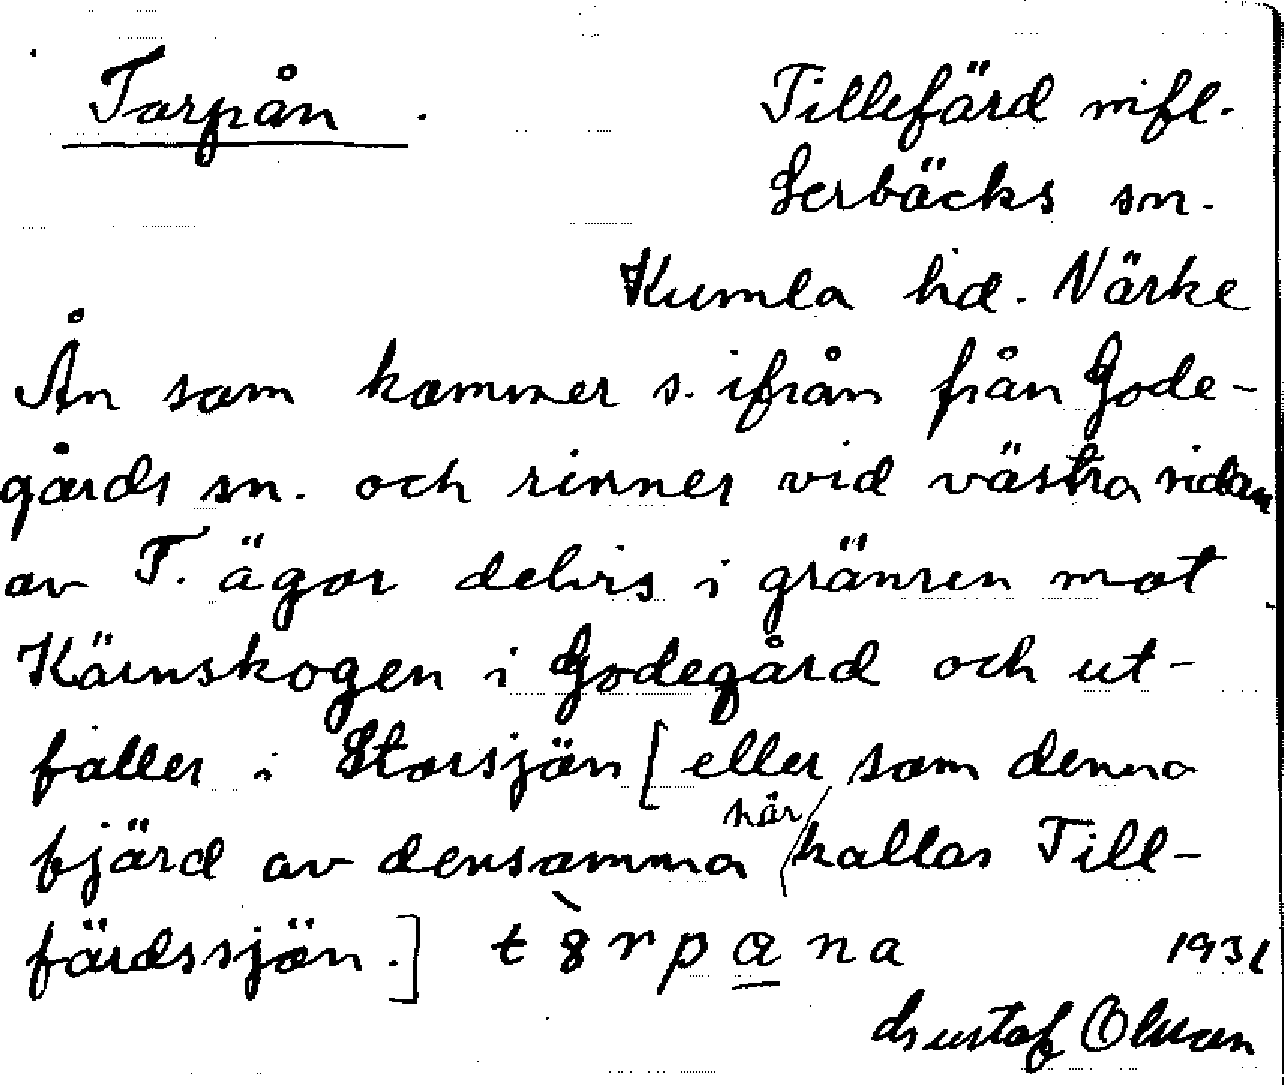 Torpån. Tillefärd mfl.
Lerbäcks sn.
Kumla hd. Närke
Ån som kommer s. ifrån från Gode-
gårds sn. och rinner vid västra sidan
av T. ägor delvis i gränsen mot
Kärnskogen i Godegård och ut-
faller i Storsjön [eller som denna
fjärd av densamma här kallas Till-
färdssjön.] t
r p a n a 1931
Gustaf Olsson